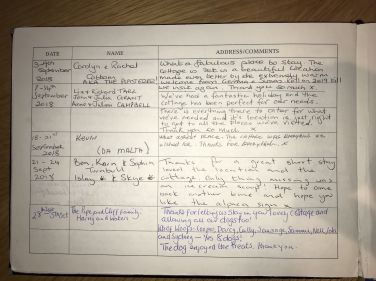 DATE NAME ADDRESS/COMMENTS
3-7th Carolyn & Rachel What a fabulous place to stay. The
September cottage is set in a beautiful location
2018 AKA THE PLASTERERS made even better by the extremely warm
welcome from
we visit again. Thank you so much x
7-14th Liz & Richard TARR We've had a fantastic holiday and the
September Jane & Julian GRANT cottage has been perfect for our needs.
2018 Anne & Julian CAMPBELL There is everything there to cater for what
we've needed and it's location is just right
to get to all the places we've visited.
Thank you so much x
15-21st KEVIN WHAT A GREAT PLACE. THE COTTAGE WAS EVERYTHING WE
September WISHED FOR. THANKS FOR EVERYTHING.
2018 (DA MALTA)
21-24 Ben, Karin & Sophia Thanks for a great short stay
Sept Turnbull loved the location and the
2018 Islay & Skye cottage. Only thing missing was
an ice cream Hope to come
back another time and hope you
like the alpaca sign x
The Pipe and Cliff family. Thanks for letting us stay in your lovely cottage and
Harry and allowing all our dogs too!
Woof Woofs Cooper, Darcy,
and Sydney - Yes 8 dogs!
The dogs enjoyed the treats. Thank you.